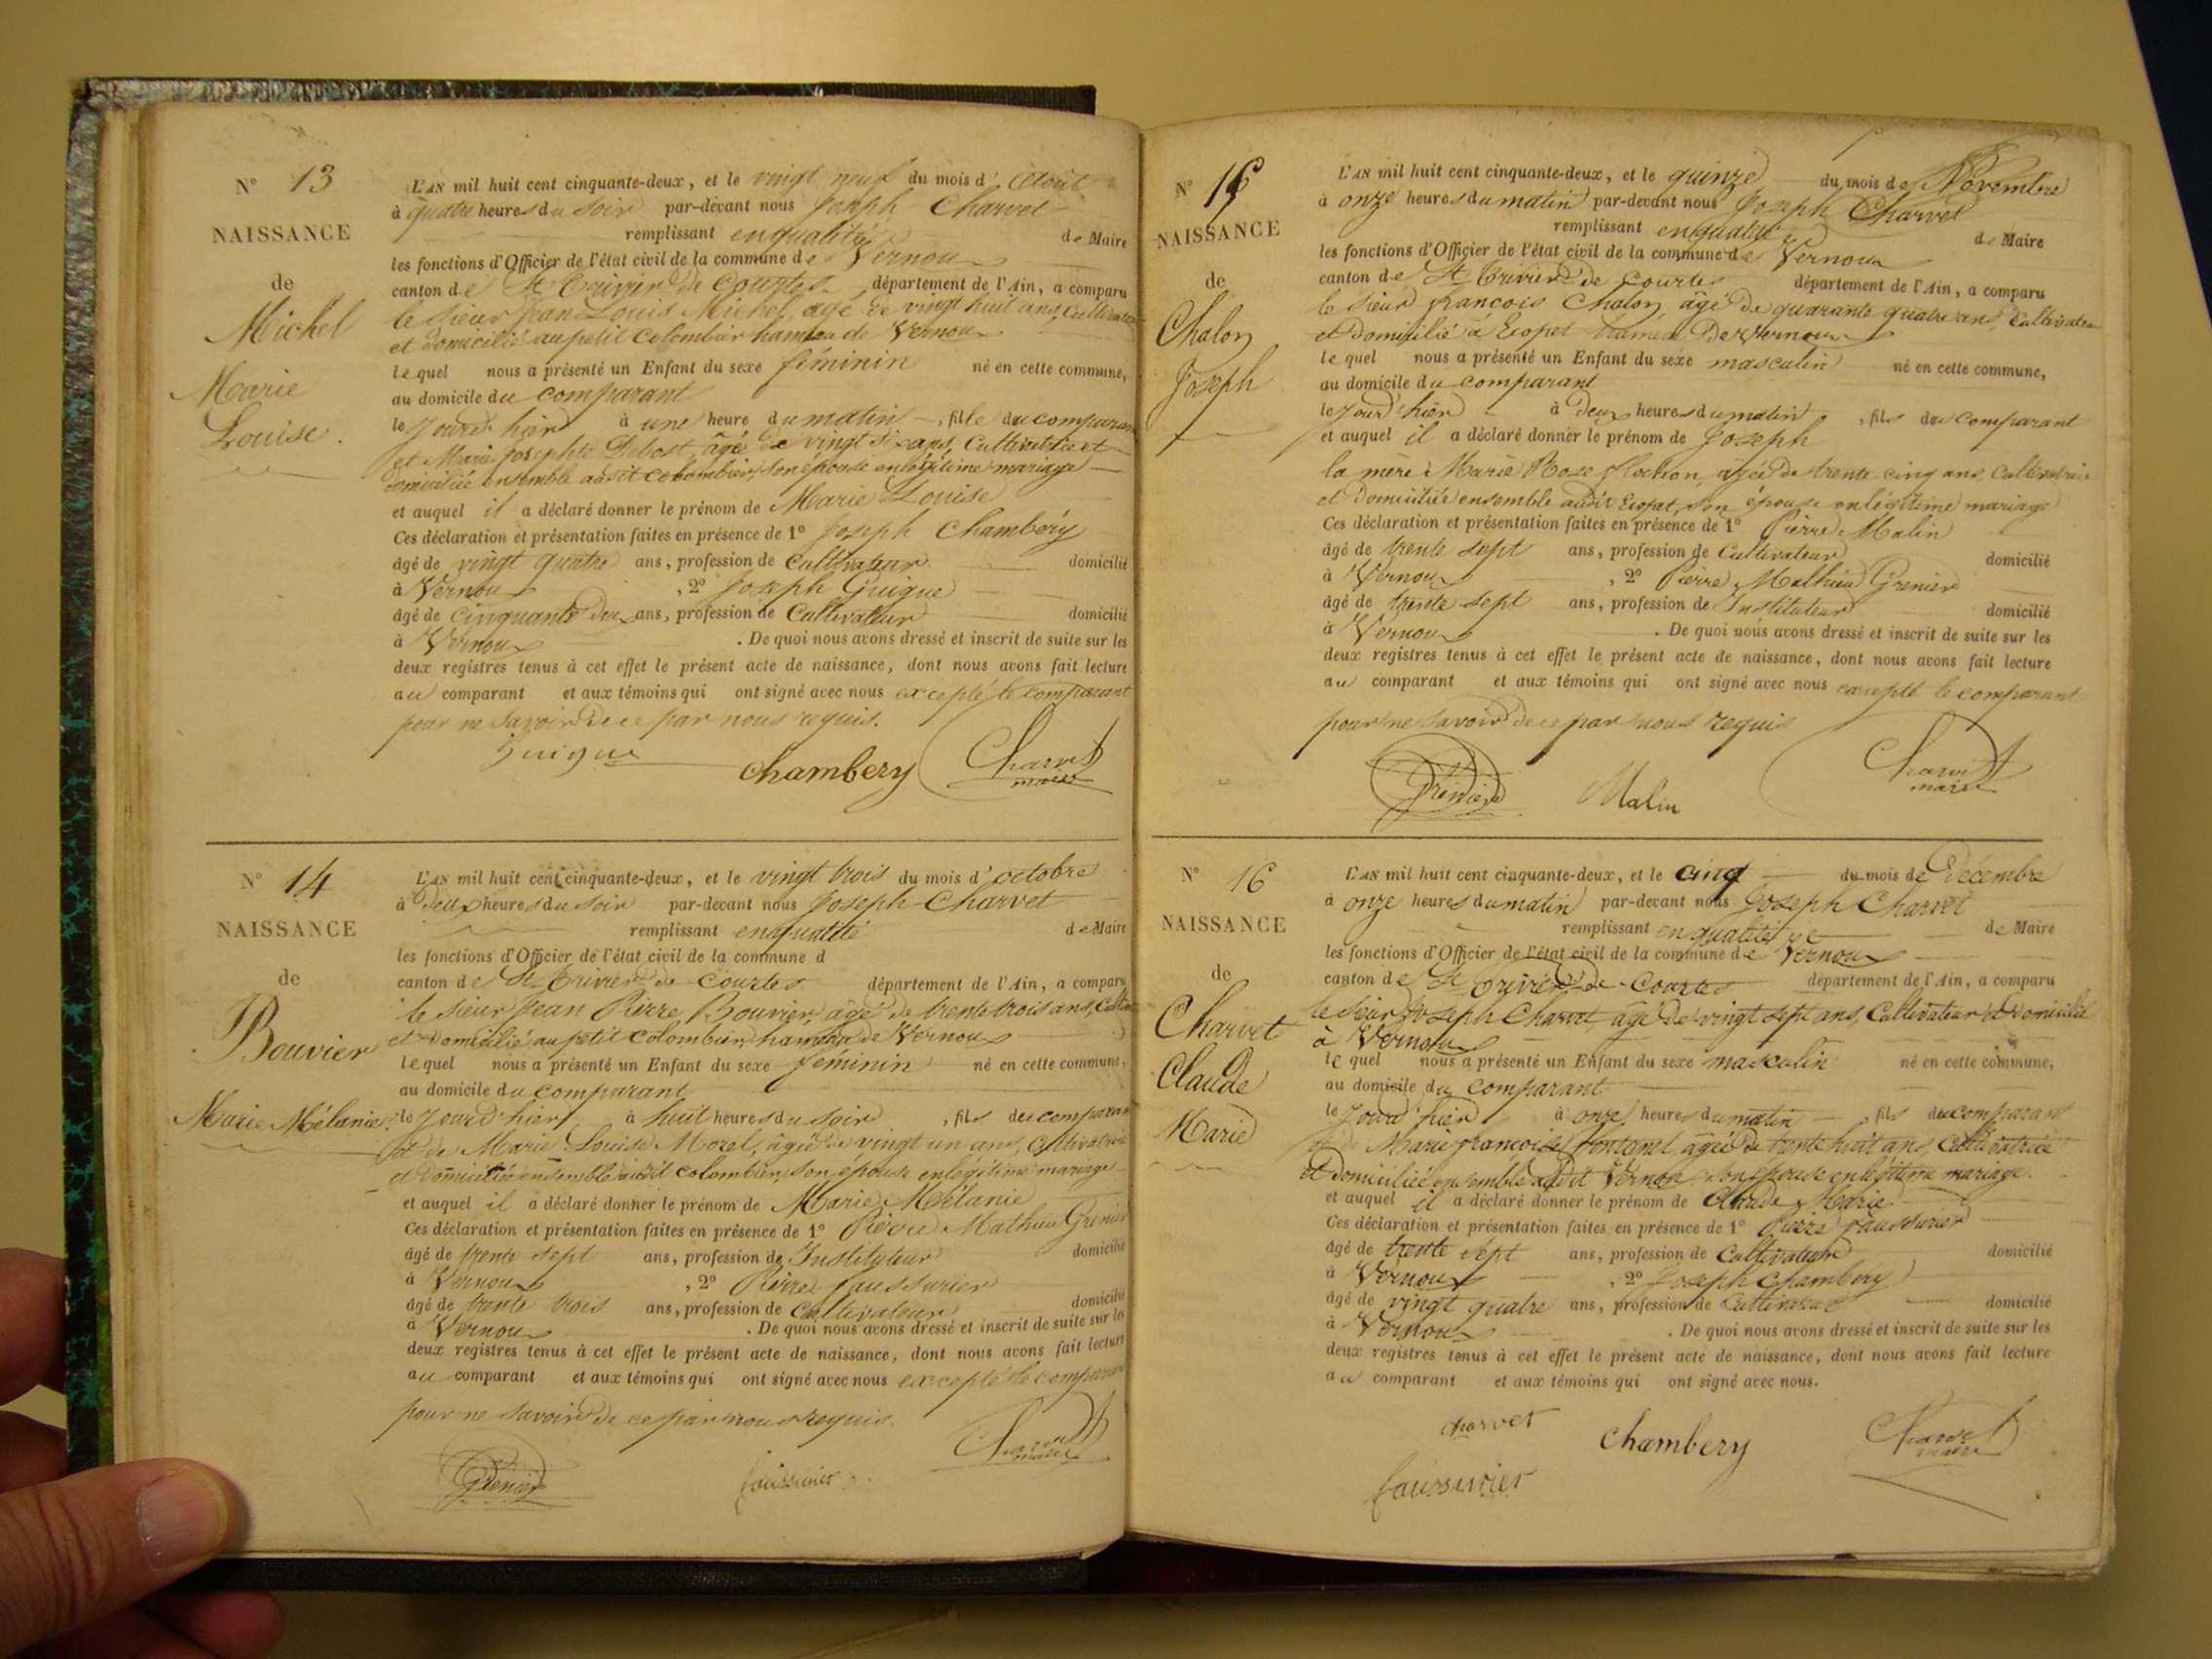 N° 13
NAISSANCE
de
Michel
Marie
Louise.
L'AN mil huit cent cinquante-deux, et le vingt neuf du mois d' Août
à quatre heures du soir par-devant nous Joseph Charvet
remplissant en qualité de Maire
les fonctions d'Officier de l'état civil de la commune de Vernoux
canton de St Trivier de Courtes département de l'Ain, a comparu
le sieur Jean Louis Michel, agé de vingt huit ans, Cultivateur
et domicilié au petit Colombier hameau de Vernoux
lequel nous a présenté un Enfant du sexe féminin né en cette commune,
au domicile du comparant
le jour d'hier à une heure du matin, fille du comparant
et Marie Josephte Debost, âgée de vingt six ans, Cultivatrice et
domiciliée ensemble audit colombier, son épouse en légitime mariage
et auquel il a déclaré donner le prénom de Marie Louise
Ces déclaration et présentation faites en présence de 1° Joseph Chambéry
âgé de vingt quatre ans, profession de Cultivateur domicilié
à Vernoux, 2° Joseph Guigue
âgé de cinquante deux ans, profession de Cultivateur domicilié
à Vernoux. De quoi nous avons dressé et inscrit de suite sur les
deux registres tenus à cet effet le présent acte de naissance, dont nous avons fait lecture
au comparant et aux témoins qui ont signé avec nous excepté le comparant
pour ne savoir de ce par nous requis.
Guigue chambery Charvet
maire
N° 14
NAISSANCE
de
Bouvier
Marie Mélanie.
L'AN mil huit cent cinquante-deux, et le vingt trois du mois d' octobre
à Deux heures du soir par-devant nous Joseph Charvet
remplissant en qualité de Maire
les fonctions d'Officier de l'état civil de la commune d
canton de St Trivier de Courtes département de l'Ain, a comparu
le sieur Jean Pierre Bouvier, âgé de trente trois ans,
et domicilié au petit colombier, hameau de Vernoux
lequel nous a présenté un Enfant du sexe féminin né en cette commune,
au domicile du comparant
le jour d'hier à huit heures du soir, fils du comparant
et de Marie Louise Morel, âgée de vingt un ans, Cultivatrice
et domiciliée ensemble audit colombier, son épouse en légitime mariage
et auquel il a déclaré donner le prénom de Marie Mélanie
Ces déclaration et présentation faites en présence de 1° Pierre Mathieu Grenier
âgé de trente sept ans, profession de Instituteur domicilié
à Vernoux, 2° Pierre faussurier
âgé de trente trois ans, profession de Cultivateur domicilié
à Vernoux. De quoi nous avons dressé et inscrit de suite sur les
deux registres tenus à cet effet le présent acte de naissance, dont nous avons fait lecture
au comparant et aux témoins qui ont signé avec nous excepté le comparant
pour ne savoir de ce par nous requis.
Grenier faussurier Charvet
maire
N° 15
NAISSANCE
de
Chalon
Joseph
L'AN mil huit cent cinquante-deux, et le quinze du mois de Novembre
à onze heures du matin par-devant nous Joseph Charvet
remplissant en qualité de Maire
les fonctions d'Officier de l'état civil de la commune de Vernoux
canton de St Trivier de Courtes département de l'Ain, a comparu
le sieur françois Chalon, âgé de quarante quatre ans, Cultivateur
et domicilié à Ecopet hameau De Vernoux
lequel nous a présenté un Enfant du sexe masculin né en cette commune,
au domicile du comparant
le jour d'hier à deux heures du matin, fils du comparant
et auquel il a déclaré donner le prénom de Joseph
la mère Marie Rose flochon, âgée de trente cinq ans, Cultivatrice
et domiciliée ensemble audit Ecopet, son épouse en légitime mariage
Ces déclaration et présentation faites en présence de 1° Pierre Malin
âgé de trente sept ans, profession de Cultivateur domicilié
à Vernoux, 2° Pierre Mathieu Grenier
âgé de trente sept ans, profession de Instituteur domicilié
à Vernoux. De quoi nous avons dressé et inscrit de suite sur les
deux registres tenus à cet effet le présent acte de naissance, dont nous avons fait lecture
au comparant et aux témoins qui ont signé avec nous excepté le comparant
pour ne savoir de ce par nous requis
Grenier Malin Charvet
maire
N° 16
NAISSANCE
de
Charvet
Claude
Marie
L'AN mil huit cent cinquante-deux, et le cinq du mois de Décembre
à onze heures du matin par-devant nous Joseph Charvet
remplissant en qualité de Maire
les fonctions d'Officier de l'état civil de la commune de Vernoux
canton de St Trivier de Courtes département de l'Ain, a comparu
le sieur Joseph Charvet âgé de vingt sept ans, Cultivateur et domicilié
à Vernoux
lequel nous a présenté un Enfant du sexe masculin né en cette commune,
au domicile du comparant
le jour d'hier à onze heures du matin, fils du comparant
et de Marie françoise fontanel, âgée de trente huit ans, Cultivatrice
et domiciliée ensemble audit Vernoux, son épouse en légitime mariage.
et auquel il a déclaré donner le prénom de Claude Marie
Ces déclaration et présentation faites en présence de 1° Pierre faussurier
âgé de trente sept ans, profession de Cultivateur domicilié
à Vernoux, 2° Joseph Chambéry
âgé de vingt quatre ans, profession de Cultivateur domicilié
à Vernoux. De quoi nous avons dressé et inscrit de suite sur les
deux registres tenus à cet effet le présent acte de naissance, dont nous avons fait lecture
au comparant et aux témoins qui ont signé avec nous.
charvet chambery Charvet
maire
faussurier